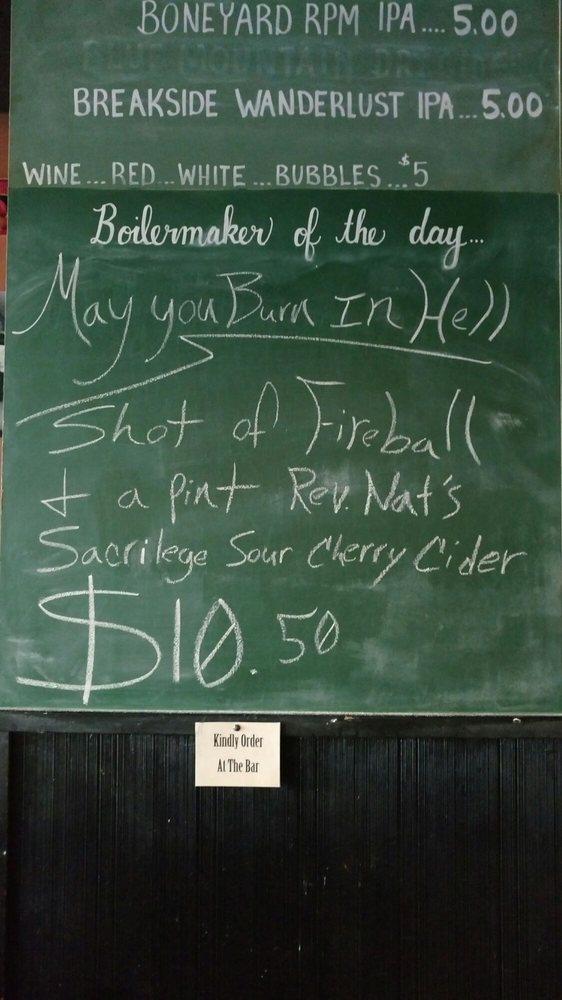 BONEYARD RPM IPA.... 5.00
BREAKSIDE WANDERLUST IPA...5.00
WINE...RED...WHITE...BUBBLES...$5
Boilermaker of the day...
May you Burn In Hell
Shot of Fireball
+ a pint Rev. Nat's
Sacrilege Sour Cherry Cider
$10.50
Kindly Order
At The Bar